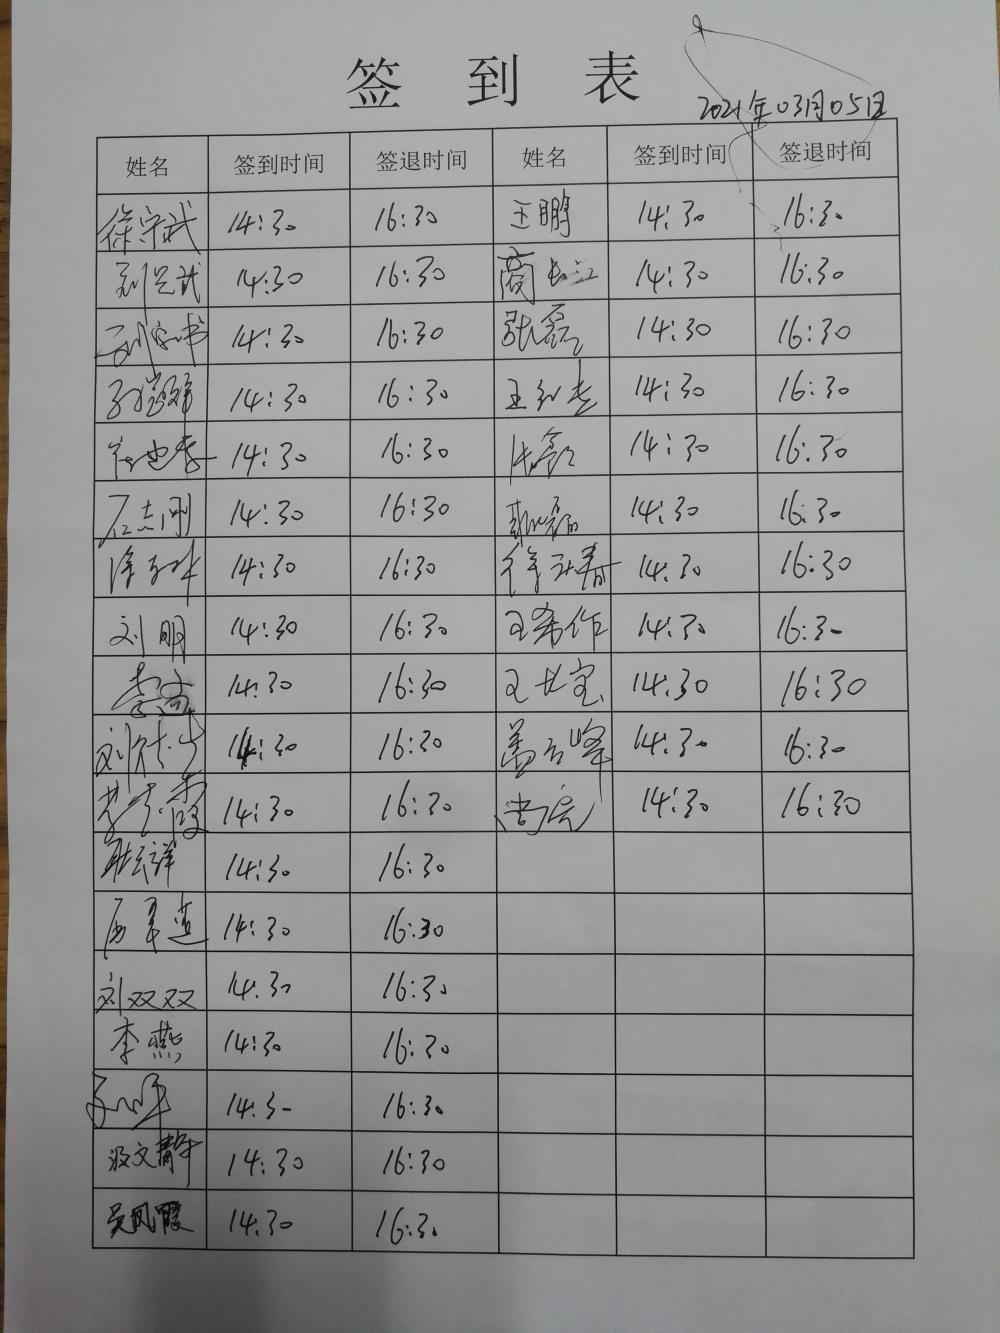 签到表
2021年03月05日
姓名 签到时间 签退时间 姓名 签到时间 签退时间
徐守武 14:30 16:30 王鹏 14:30 16:30
14:30 16:30 商长江 14:30 16:30
14:30 16:30 张磊 14:30 16:30
14:30 16:30 14:30 16:30
14:30 16:30 14:30 16:30
石志刚 14:30 16:30 14:30 16:30
14:30 16:30 14:30 16:30
刘明 14:30 16:30 王希作 14:30 16:30
李 14:30 16:30 王世宝 14:30 16:30
刘 14:30 16:30 14:30 16:30
霞 14:30 16:30 尚亮 14:30 16:30
杜云祥 14:30 16:30
14:30 16:30
刘双双 14:30 16:30
李燕 14:30 16:30
14:30 16:30
汲文静 14:30 16:30
吴凤霞 14:30 16:30